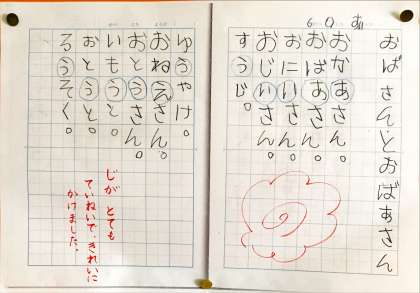 おばさんとおばあさん
おかあさん。
おばあさん。
おにいさん。
おじいさん。
すうじ。
ゆうやけ。
おねえさん。
おとうさん。
いもうと。
おとうと。
ろうそく。
じが とても
ていねいで、きれいに
かけました。